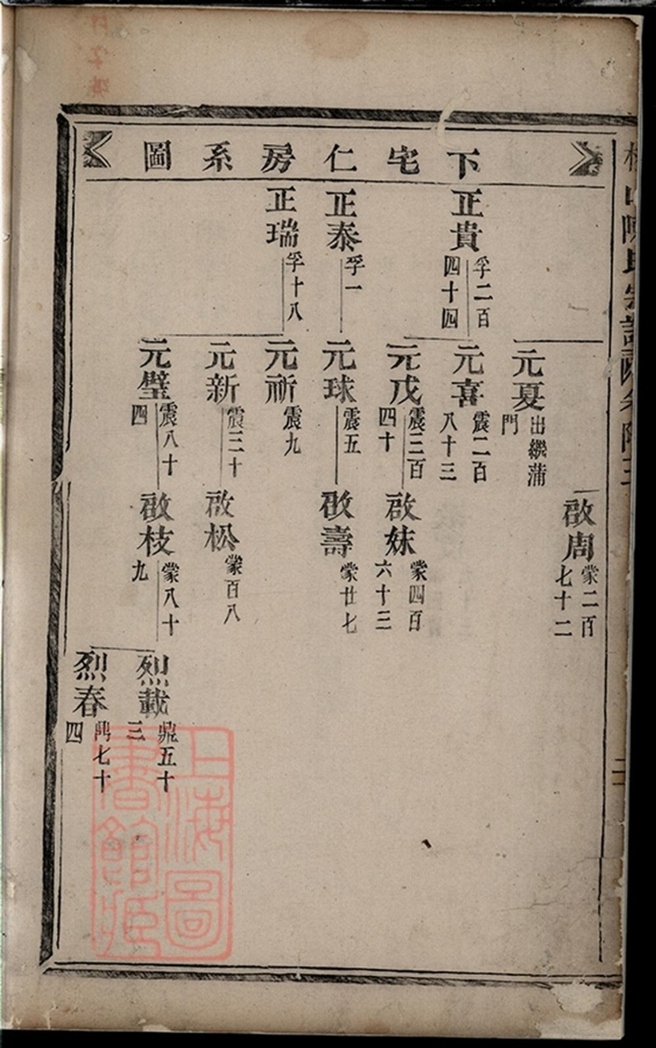 下宅仁房系圖
正貴 孚二百四十四
正泰 孚一
正瑞 孚十八
元夏 出繼蒲門
元喜 震二百八十三
元戊 震三百四十
元球 震五
元祈 震九
元新 震三十
元璧 震八十四
啟周 蒙二百七十二
啟妹 蒙四百六十三
啟壽 蒙廿七
啟松 蒙百八
啟枝 蒙八十九
烈載 鼎五十三
烈春 鼎七十四
上海圖書館藏